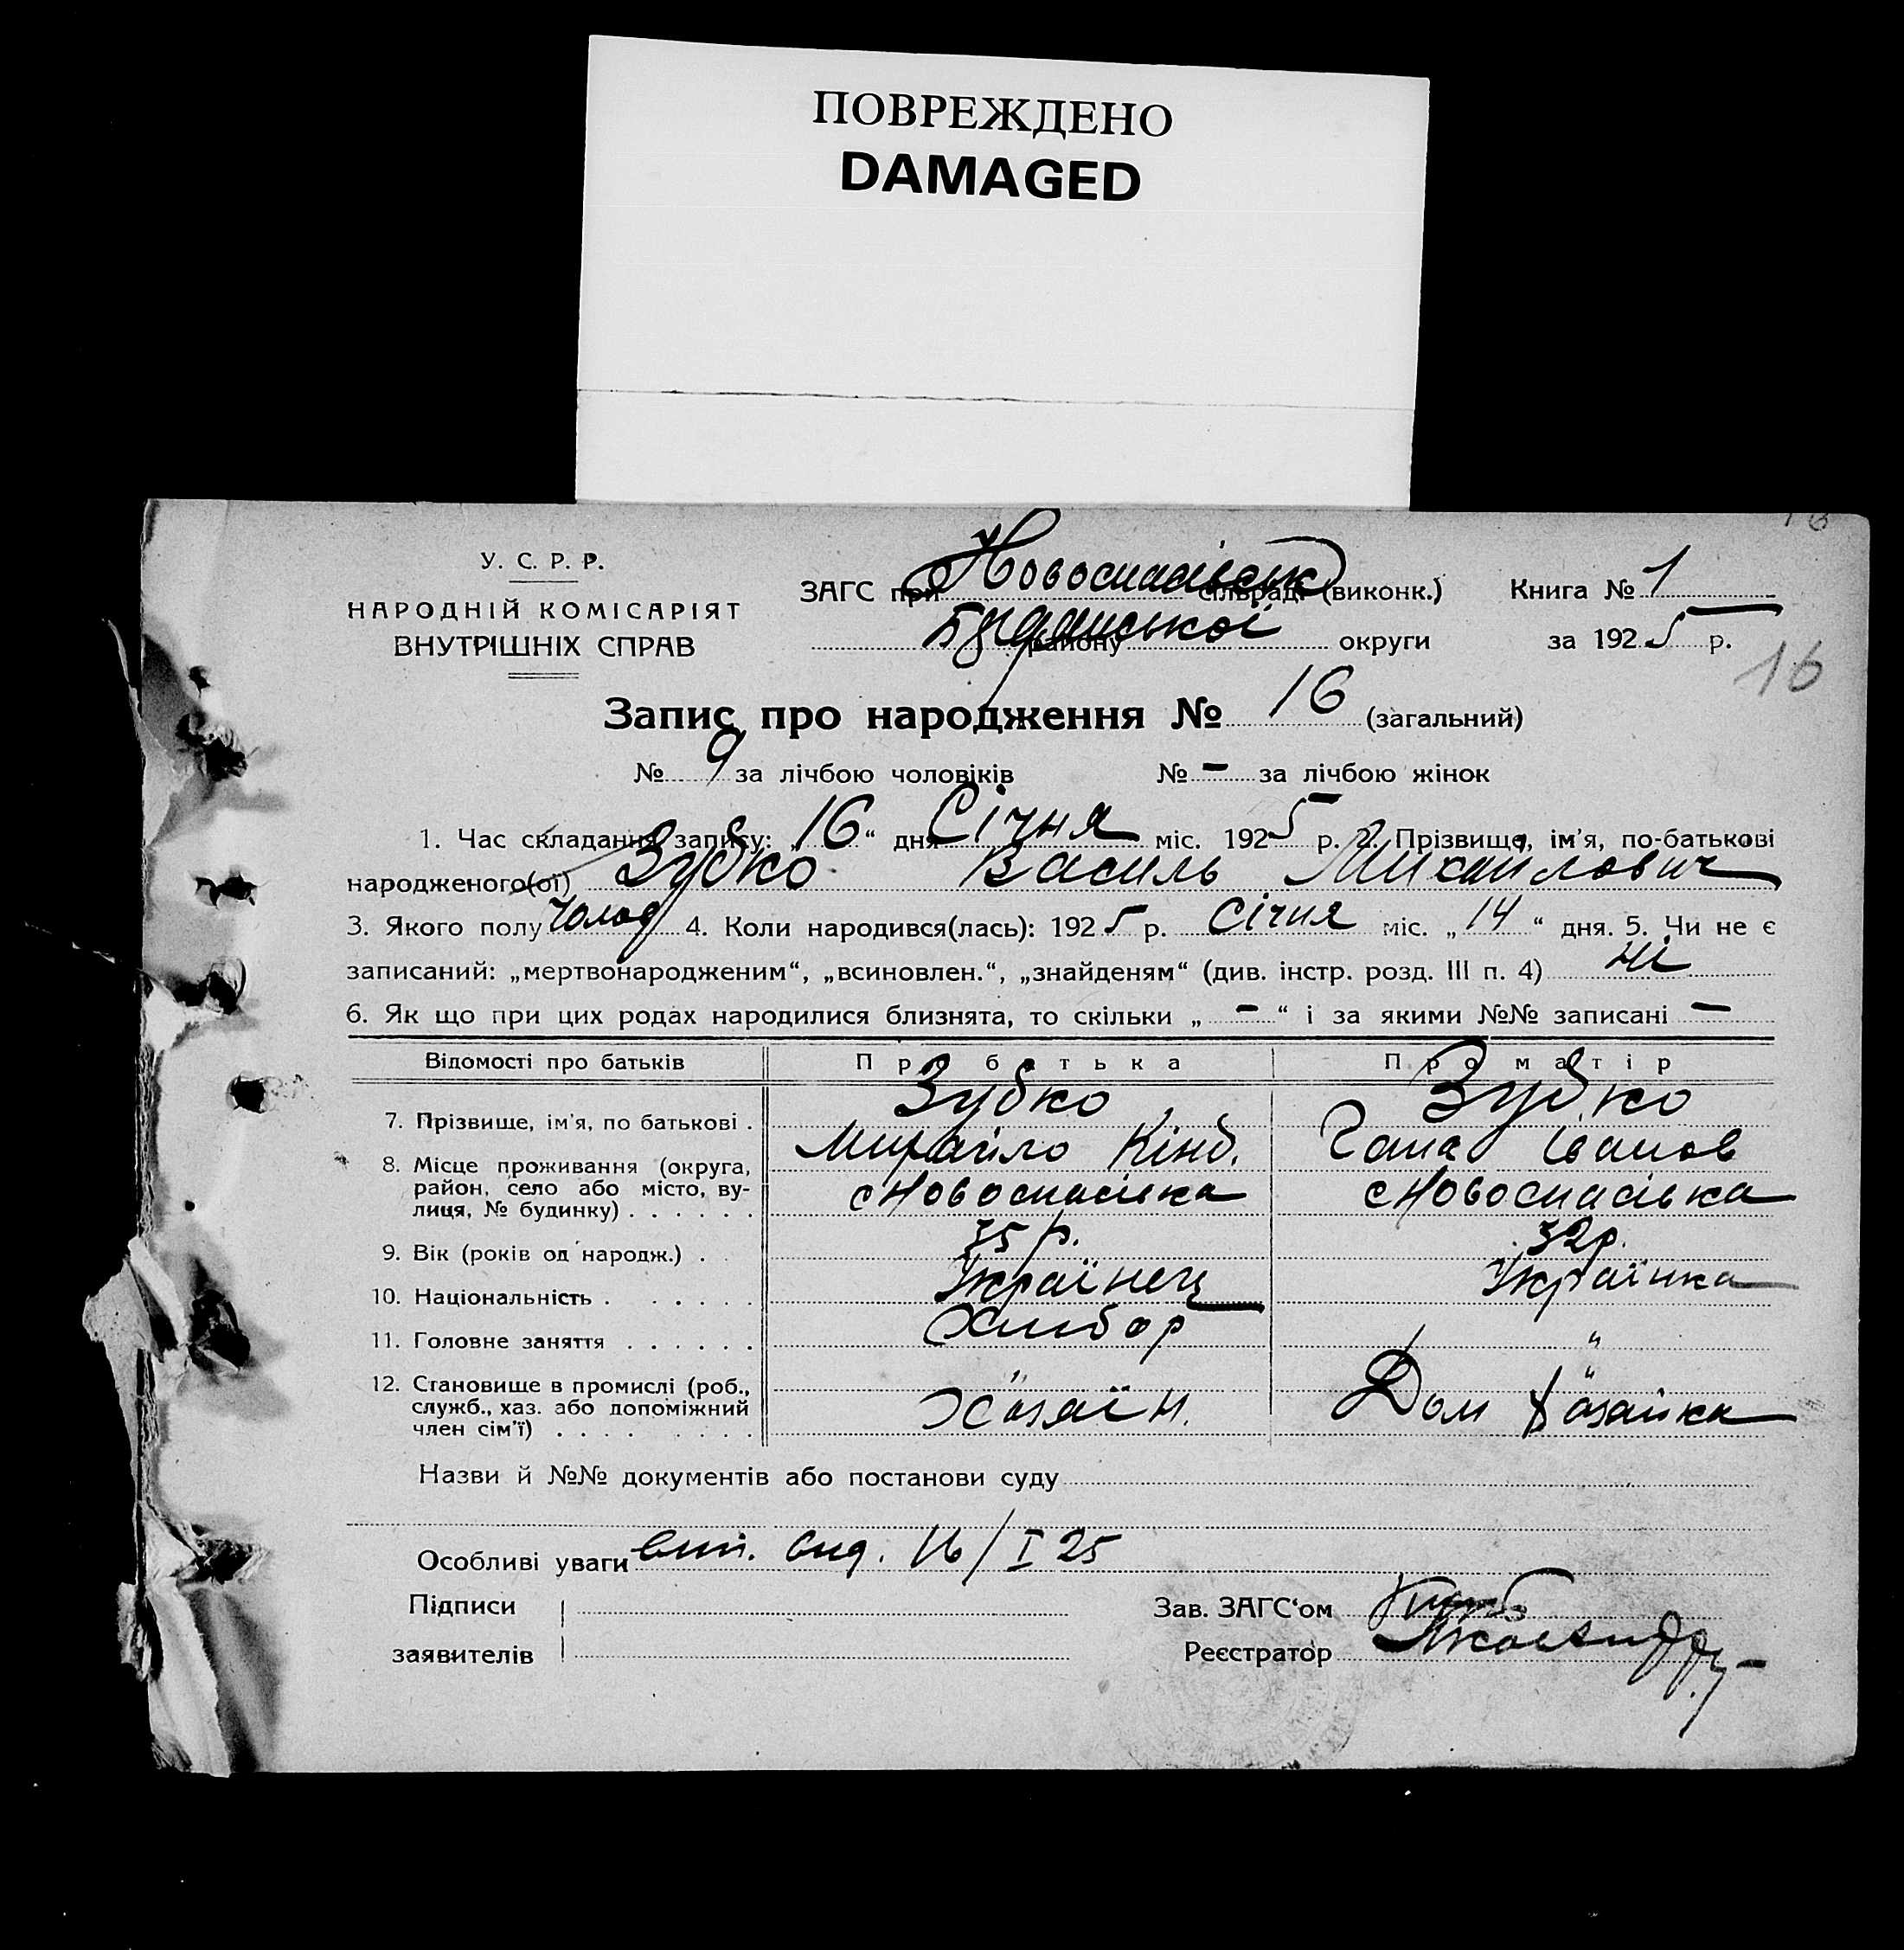 ПОВРЕЖДЕНО
DAMAGED
У. С. Р. Р.
НАРОДНІЙ КОМІСАРІЯТ
ВНУТРІШНІХ СПРАВ
ЗАГС при Новоспасівськ сільраді (виконк.) Книга № 1
району округи за 1925 р.
16
Запис про народження № 16 (загальний)
№ 9 за лічбою чоловіків № - за лічбою жінок
1. Час складання запису: „16“ дня Січня міс. 1925 р. 2. Прізвище, ім'я, по-батькові
народженого(ої) Зубко Василь Михайлович
3. Якого полу чолов 4. Коли народився(лась): 1925 р. Січня міс. „14“ дня. 5. Чи не є
записаний: „мертвонародженим“, „всиновлен.“, „знайденям“ (див. інстр. розд. III п. 4) Ні
6. Як що при цих родах народилися близнята, то скільки „-“ і за якими №№ записані -
Відомості про батьків Про батька Про матір
7. Прізвище, ім'я, по батькові . Зубко Михайло Кінд. Зубко Гана Іванов
8. Місце проживання (округа, район, село або місто, вулиця, № будинку) . . . . . . с Новоспасівка с Новоспасівка
9. Вік (років од народж.) . 35 р. 32 р.
10. Національність . . . . . . Українец Українка
11. Головне заняття . . . . . . Хлибор "
12. Становище в промислі (роб., служб., хаз. або допоміжний член сім'ї) . . . . . . . . Хазяїн. Дом Хазайка
Назви й №№ документів або постанови суду
Особливі уваги вип. вид. 16/I 25
Підписи
заявителів
Зав. ЗАГС‘ом
Реєстратор